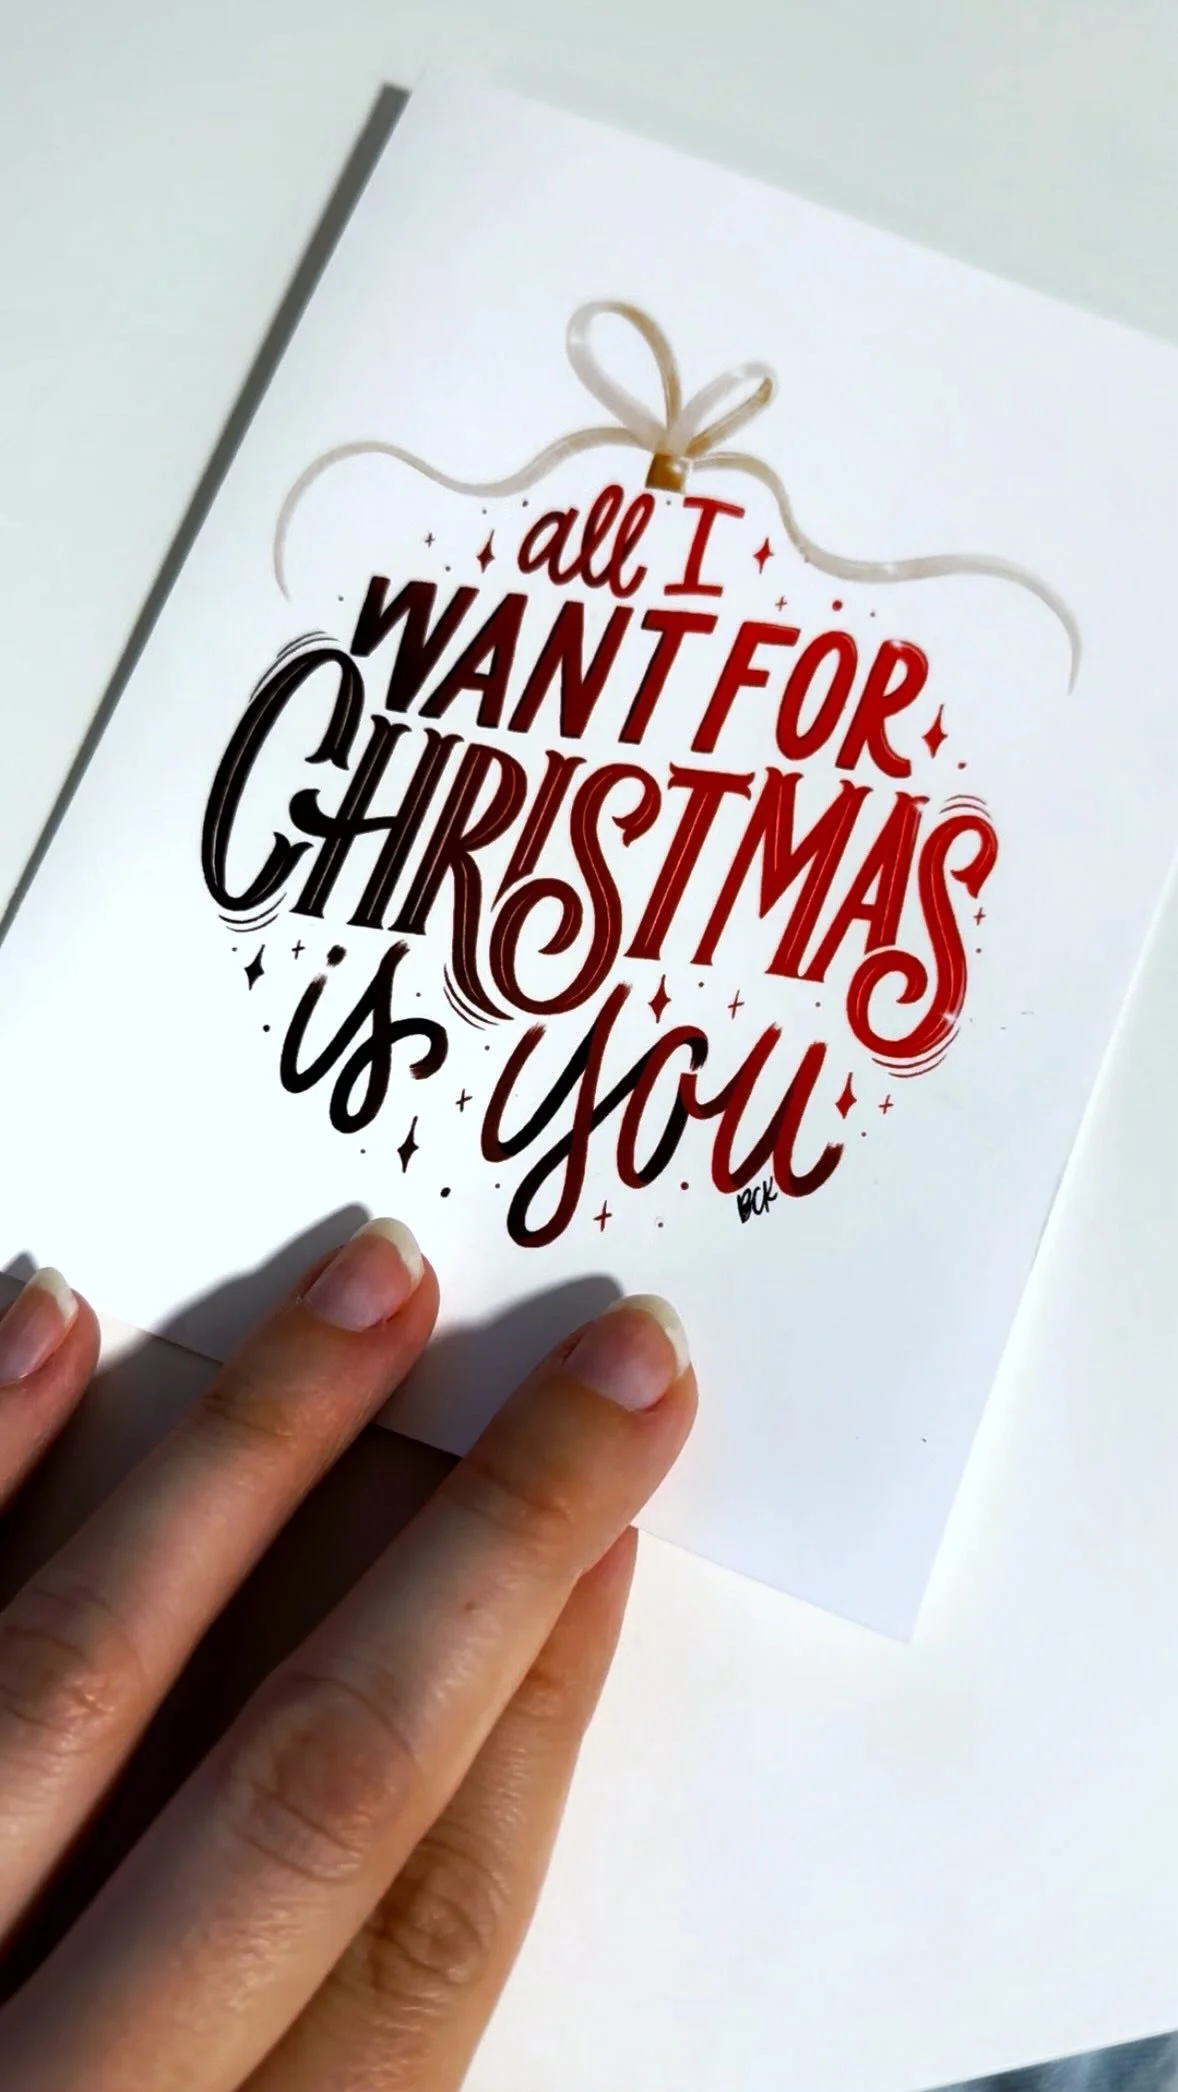 all I
WANT FOR
CHRISTMAS
is you
BCK